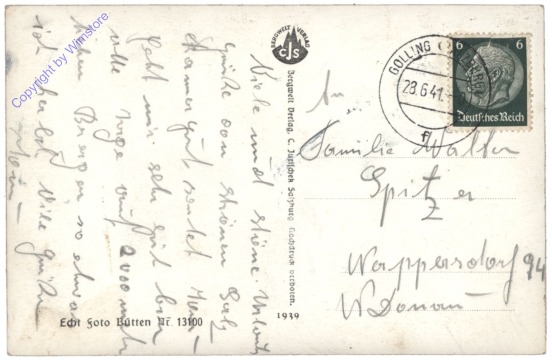 Copyright by Wimstore
Viele und schöne Urlaubs
grüße vom schönen Salz
kammergut sendet
Geht mir sehr gut bin
alle Tage auf 2000 mtr
hohen Bergen so etwas
ist herrlich Viele Grüße
BERGWELT VERLAG
CJS
Bergwelt Verlag, C. Jurischek Salzburg Nachdruck verboten.
1939
Echt Foto Bütten Nr. 13100
GOLLING
28.6.41
f
6 6
Deutsches Reich
An
Familie Walter
Spitzer
Wappersdorf 94
N Donau